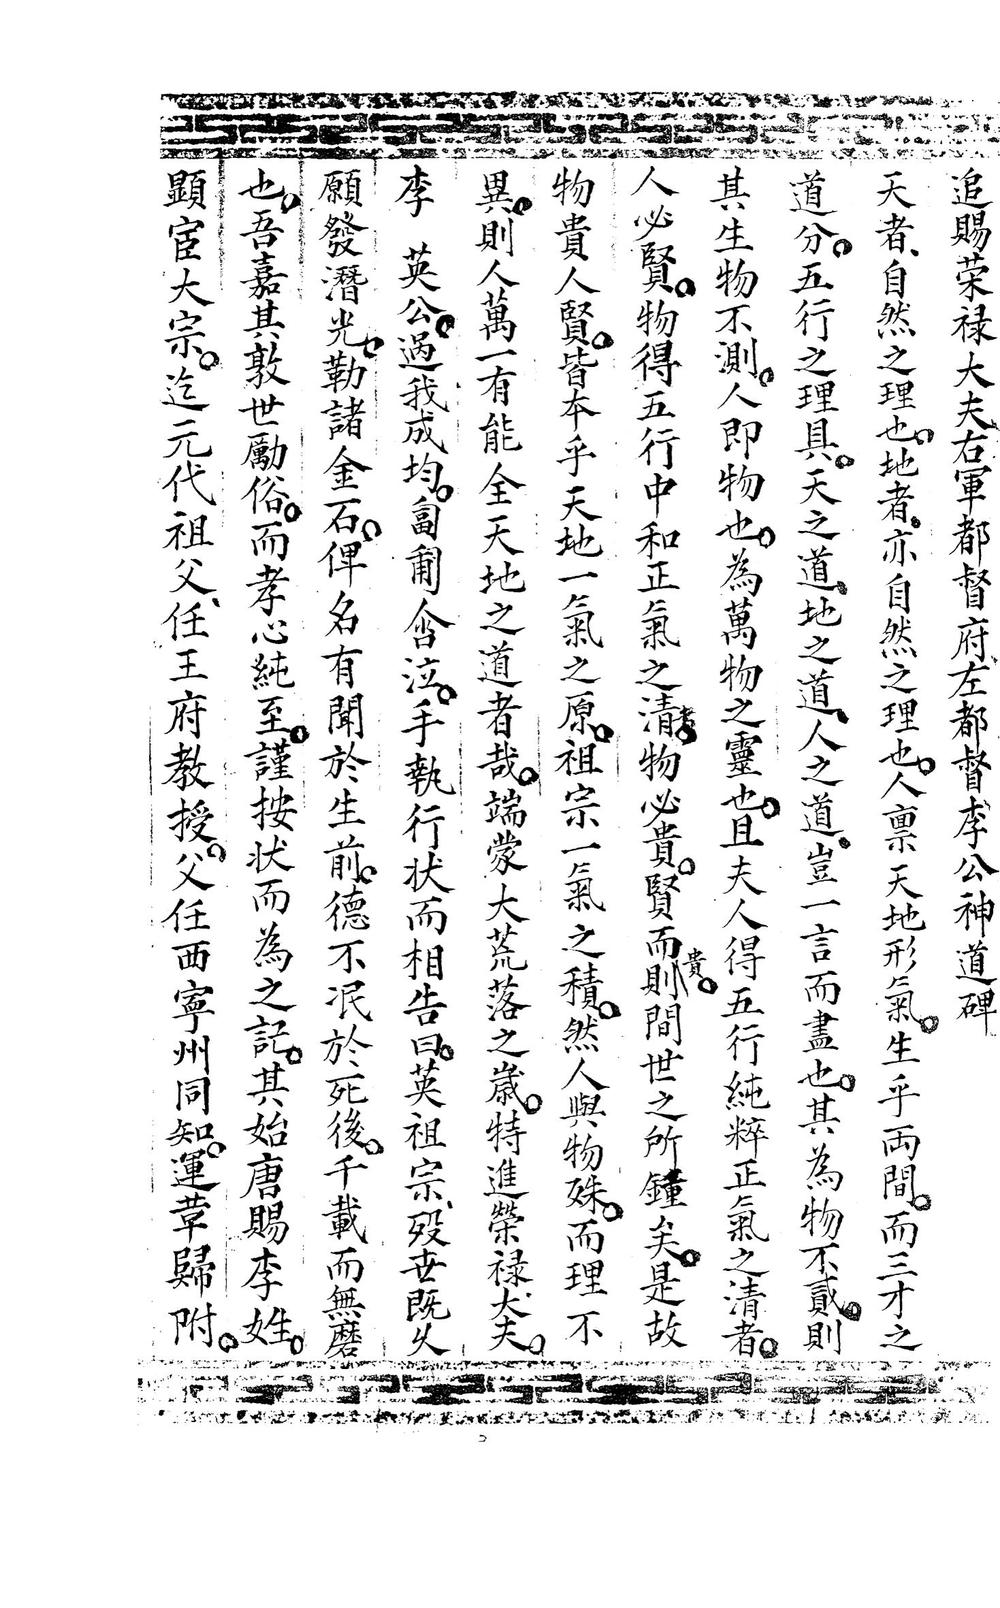 追賜荣禄大夫右軍都督府左都督李公神道碑
天者、自然之理也。地者。亦自然之理也。人禀天地形氣。生乎両間。而三才之
道分。五行之理具。天之道、地之道、人之道。豈一言而盡也。其為物不貳。則
其生物不測。人即物也。為萬物之靈也。且夫人得五行純粹正氣之清者。
人必賢。物得五行中和正氣之清者。物必貴。賢而貴。則間世之所鐘矣。是故
物貴人賢。皆本乎天地一氣之原。祖宗一氣之積。然人與物殊。而理不
異。則人萬一有能全天地之道者哉。端蒙大荒落之歲。特進榮禄大夫。
李 英公。過我成均。匐匍含泣。手執行状而相告曰。英祖宗、歿世既久
願發潛光。勒諸金石。俾名有聞於生前。德不泯於死後。千載而無磨
也。吾嘉其敦世勵俗。而孝心純至。謹按状而為之記。其始唐賜李姓。
顕宦大宗。迄元代祖父、任王府教授。父任西寧州同知。運革歸附。